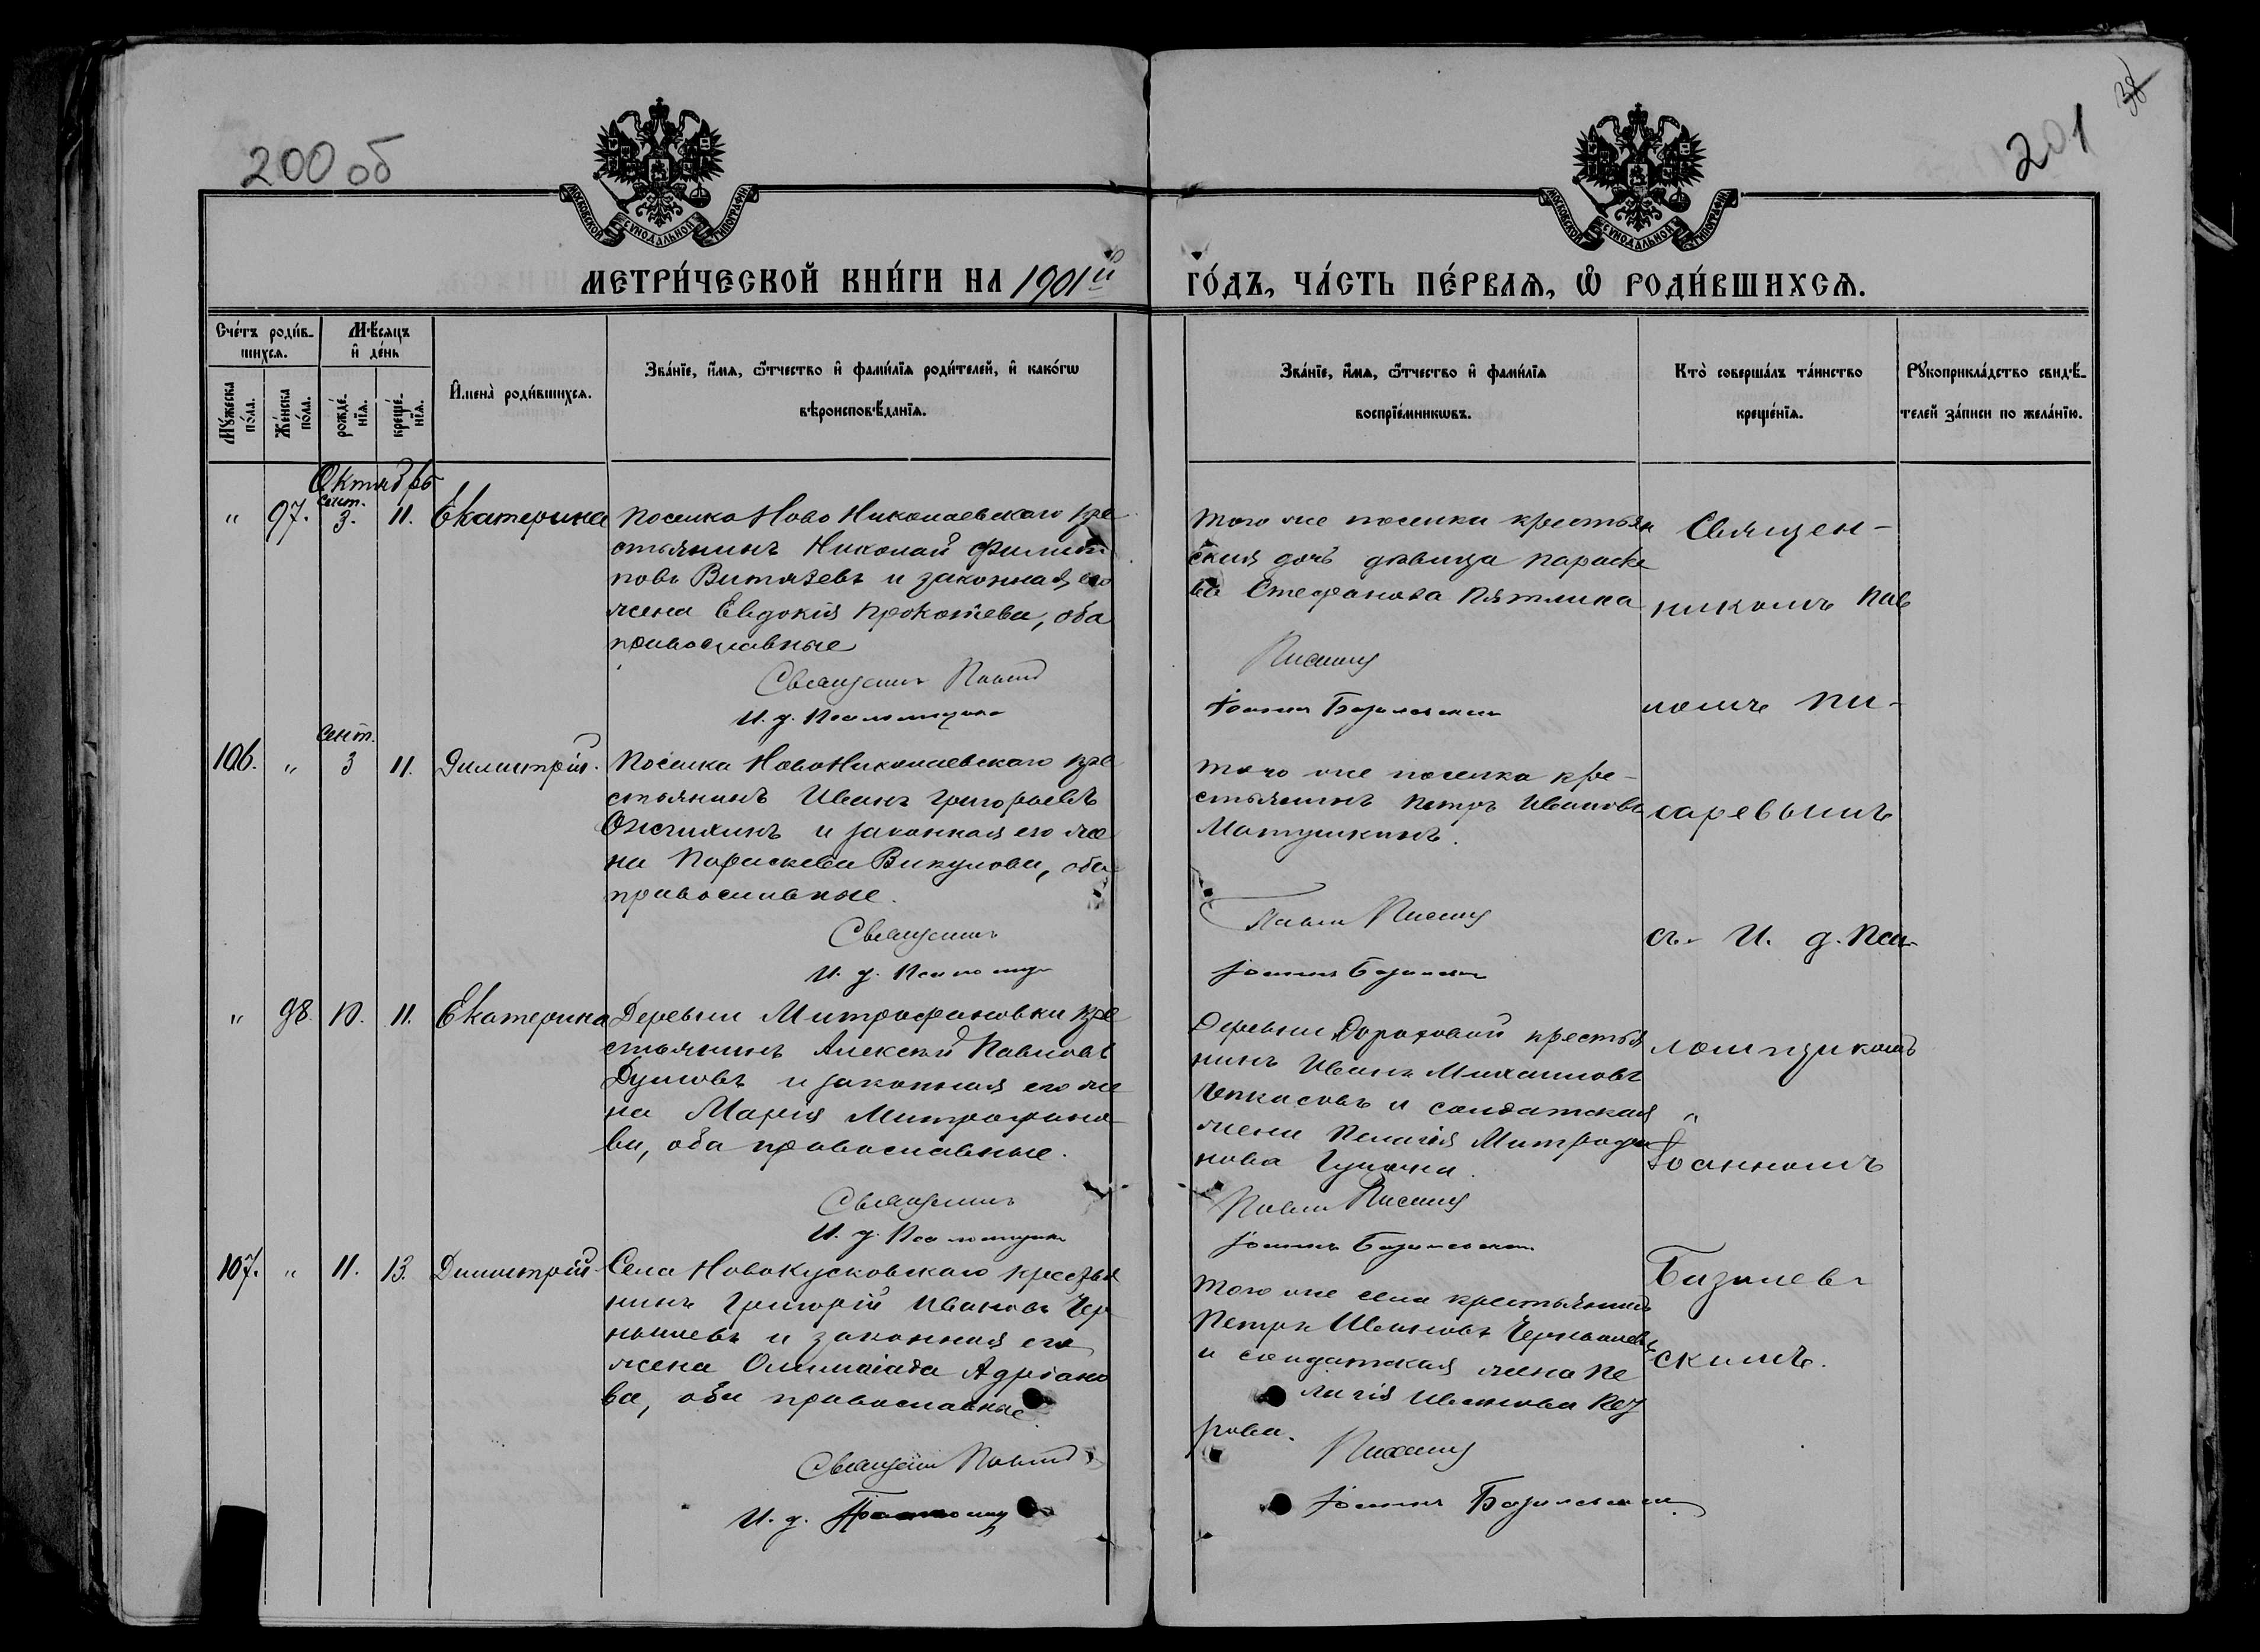 200 об
201
38
МОСКОВСКОЙ СУНОДАЛЬНОЙ ТИПОГРАФІИ
МОСКОВСКОЙ СУНОДАЛЬНОЙ ТИПОГРАФІИ
МЕТРИ́ЧЕСКОЙ КНИ́ГИ НА 1901й
ГО́ДЪ, ЧА́СТЬ ПЕ́РВАѦ, Ѡ РОДИ́ВШИХСѦ.
Сче́тъ роди́в-
шихсѧ.
Мѣ́сѧцъ
и де́нь
Мꙋ́жеска по́ла.
Же́нска по́ла.
рожде́-
нїѧ.
креще́-
нїѧ.
Имена̀ роди́вшихсѧ.
Зва́нїе, и́мѧ, ѻ́тчество и фами́лїѧ роди́телей, и како́гѡ
вѣроисповѣ́данїѧ.
Зва́нїе, и́мѧ, ѻ́тчество и фами́лїѧ
воспрїе́мникѡвъ.
Кто̀ соверша́лъ та́инство
креще́нїѧ.
Рꙋкоприкла́дство свидѣ́-
телей за́писи по жела́нїю.
Октябрь
" 97. Сент. 3. 11. Екатерина
Поселка Ново Николаевскаго кре
стьянинъ Николай Филип
повъ Витязевъ и законная его
жена Евдокія Прокопіева, оба
православные
Священникъ Павелъ
И. д. Псаломщика
того же поселка крестьян
ская дочь дѣвица Параске
ва Стефанова Пятлина
Писаревъ
Іоаннъ Базилевскій
106. " Сент. 3 11. Димитрій.
Поселка НовоНиколаевскаго кре
стьянинъ Иванъ Григорьевъ
и законная его же
на Параскева Викулова, оба
православные.
Священникъ
И. д. Псаломщика
того же поселка кре-
стьянинъ Петръ Ивановъ
Матушкинъ.
Павелъ Писаревъ
Іоаннъ Базилевскій
" 98. 10. 11. Екатерина
Деревни Митрофановки кре
стьянинъ Алексѣй Павловъ
Думовъ и законная его же
на Марія Митрофано
ва, оба православные.
Священникъ
И. д. Псаломщика
Деревни Дороховой крестья
нинъ Иванъ Михаиловъ
и солдатская
жена Пелагія Митрофа
нова
Павелъ Писаревъ
Іоаннъ Базилевскій
107. " 11. 13. Димитрій
Села НовоКусковскаго крестья
нинъ Григорій Ивановъ Чер
нышевъ и законная его
жена Олимпіада Адріано
ва, оба православные.
Священникъ Павелъ
И. д. Псаломщика
того же села крестьянинъ
Петръ Ивановъ Чернышевъ
и солдатская жена Пе
лагія Иванова
рова.
Писаревъ
Іоаннъ Базилевскій
Священ-
никомъ Пав
ломъ Пи-
саревымъ
съ И. д. Пса-
ломщикомъ
"
Іоанномъ
Базилев-
скимъ.